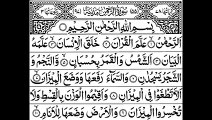 بِسْمِ اللّٰهِ الرَّحْمٰنِ الرَّحِيْمِ
اَلرَّحْمٰنُ عَلَّمَ الْقُرْاٰنَ خَلَقَ الْاِنْسَانَ عَلَّمَهُ
الْبَيَانَ اَلشَّمْسُ وَالْقَمَرُ بِحُسْبَانٍ وَّالنَّجْمُ وَ
الشَّجَرُ يَسْجُدٰنِ وَالسَّمَآءَ رَفَعَهَا وَوَضَعَ الْمِيْزَانَ
اَلَّا تَطْغَوْا فِي الْمِيْزَانِ وَاَقِيْمُوا الْوَزْنَ بِالْقِسْطِ وَلَا
تُخْسِرُوا الْمِيْزَانَ وَالْاَرْضَ وَضَعَهَا لِلْاَنَامِ